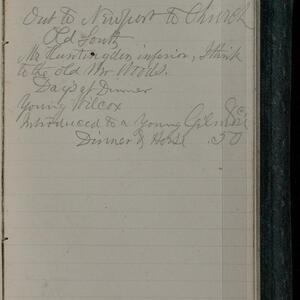 Out to Newport to Church
Old South
Mr Huntingden inferior, I think
to the old Mr Woods.
Days at Dinner
Young Wilcox
Introduced to a Young Gilmore
Dinner & Horse .50